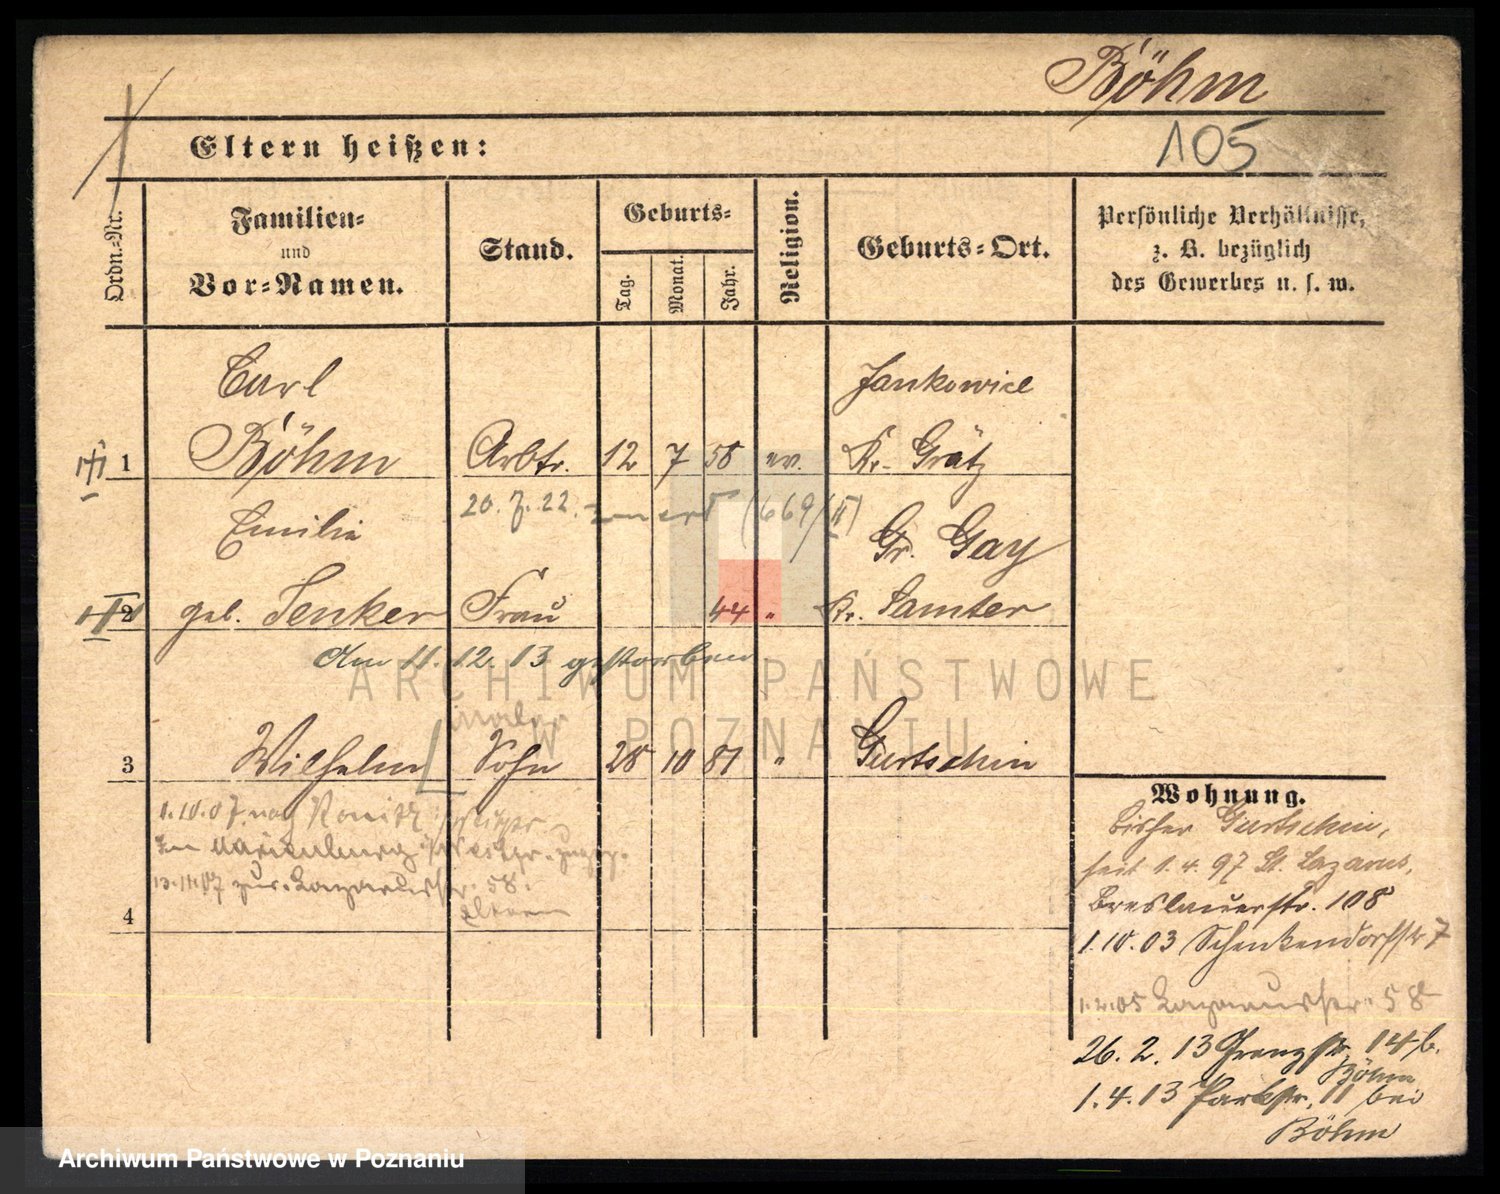 Böhm
105
Eltern heißen:
Ordn.-Nr.
Familien-
und
Vor-Namen.
Stand.
Geburts-
Tag.
Monat.
Jahr.
Religion.
Geburts-Ort.
Persönliche Verhältnisse,
z. B. bezüglich
des Gewerbes u. s. w.
Carl
Jankowice
1 Böhm Arbtr. 12 7 58 ev. Kr. Grätz
20. 7. 22. (669/II)
Emilie
Gr. Gay
2 geb. Senker Frau 44 " Kr. Samter
Am 11. 12. 13 gestorben
Maler
3 Wilhelm Sohn 28 10 81 " Gurtschin
1.10.07 nach Konitz
Marienburg Westpr.
13.11.07 zur. Lazarusstr. 58.
Eltern
4
Wohnung.
bisher Gurtschin,
seit 1. 4. 97 St. Lazarus,
Breslauerstr. 108
1.10.03 Schenkendorfstr 7
1.4.05 Lazarusstr. 58
26. 2. 13 Grenzstr. 14 b.
Böhm
1. 4. 13 Parkstr. 11 bei
Böhm
ARCHIWUM PAŃSTWOWE
W POZNANIU
Archiwum Państwowe w Poznaniu